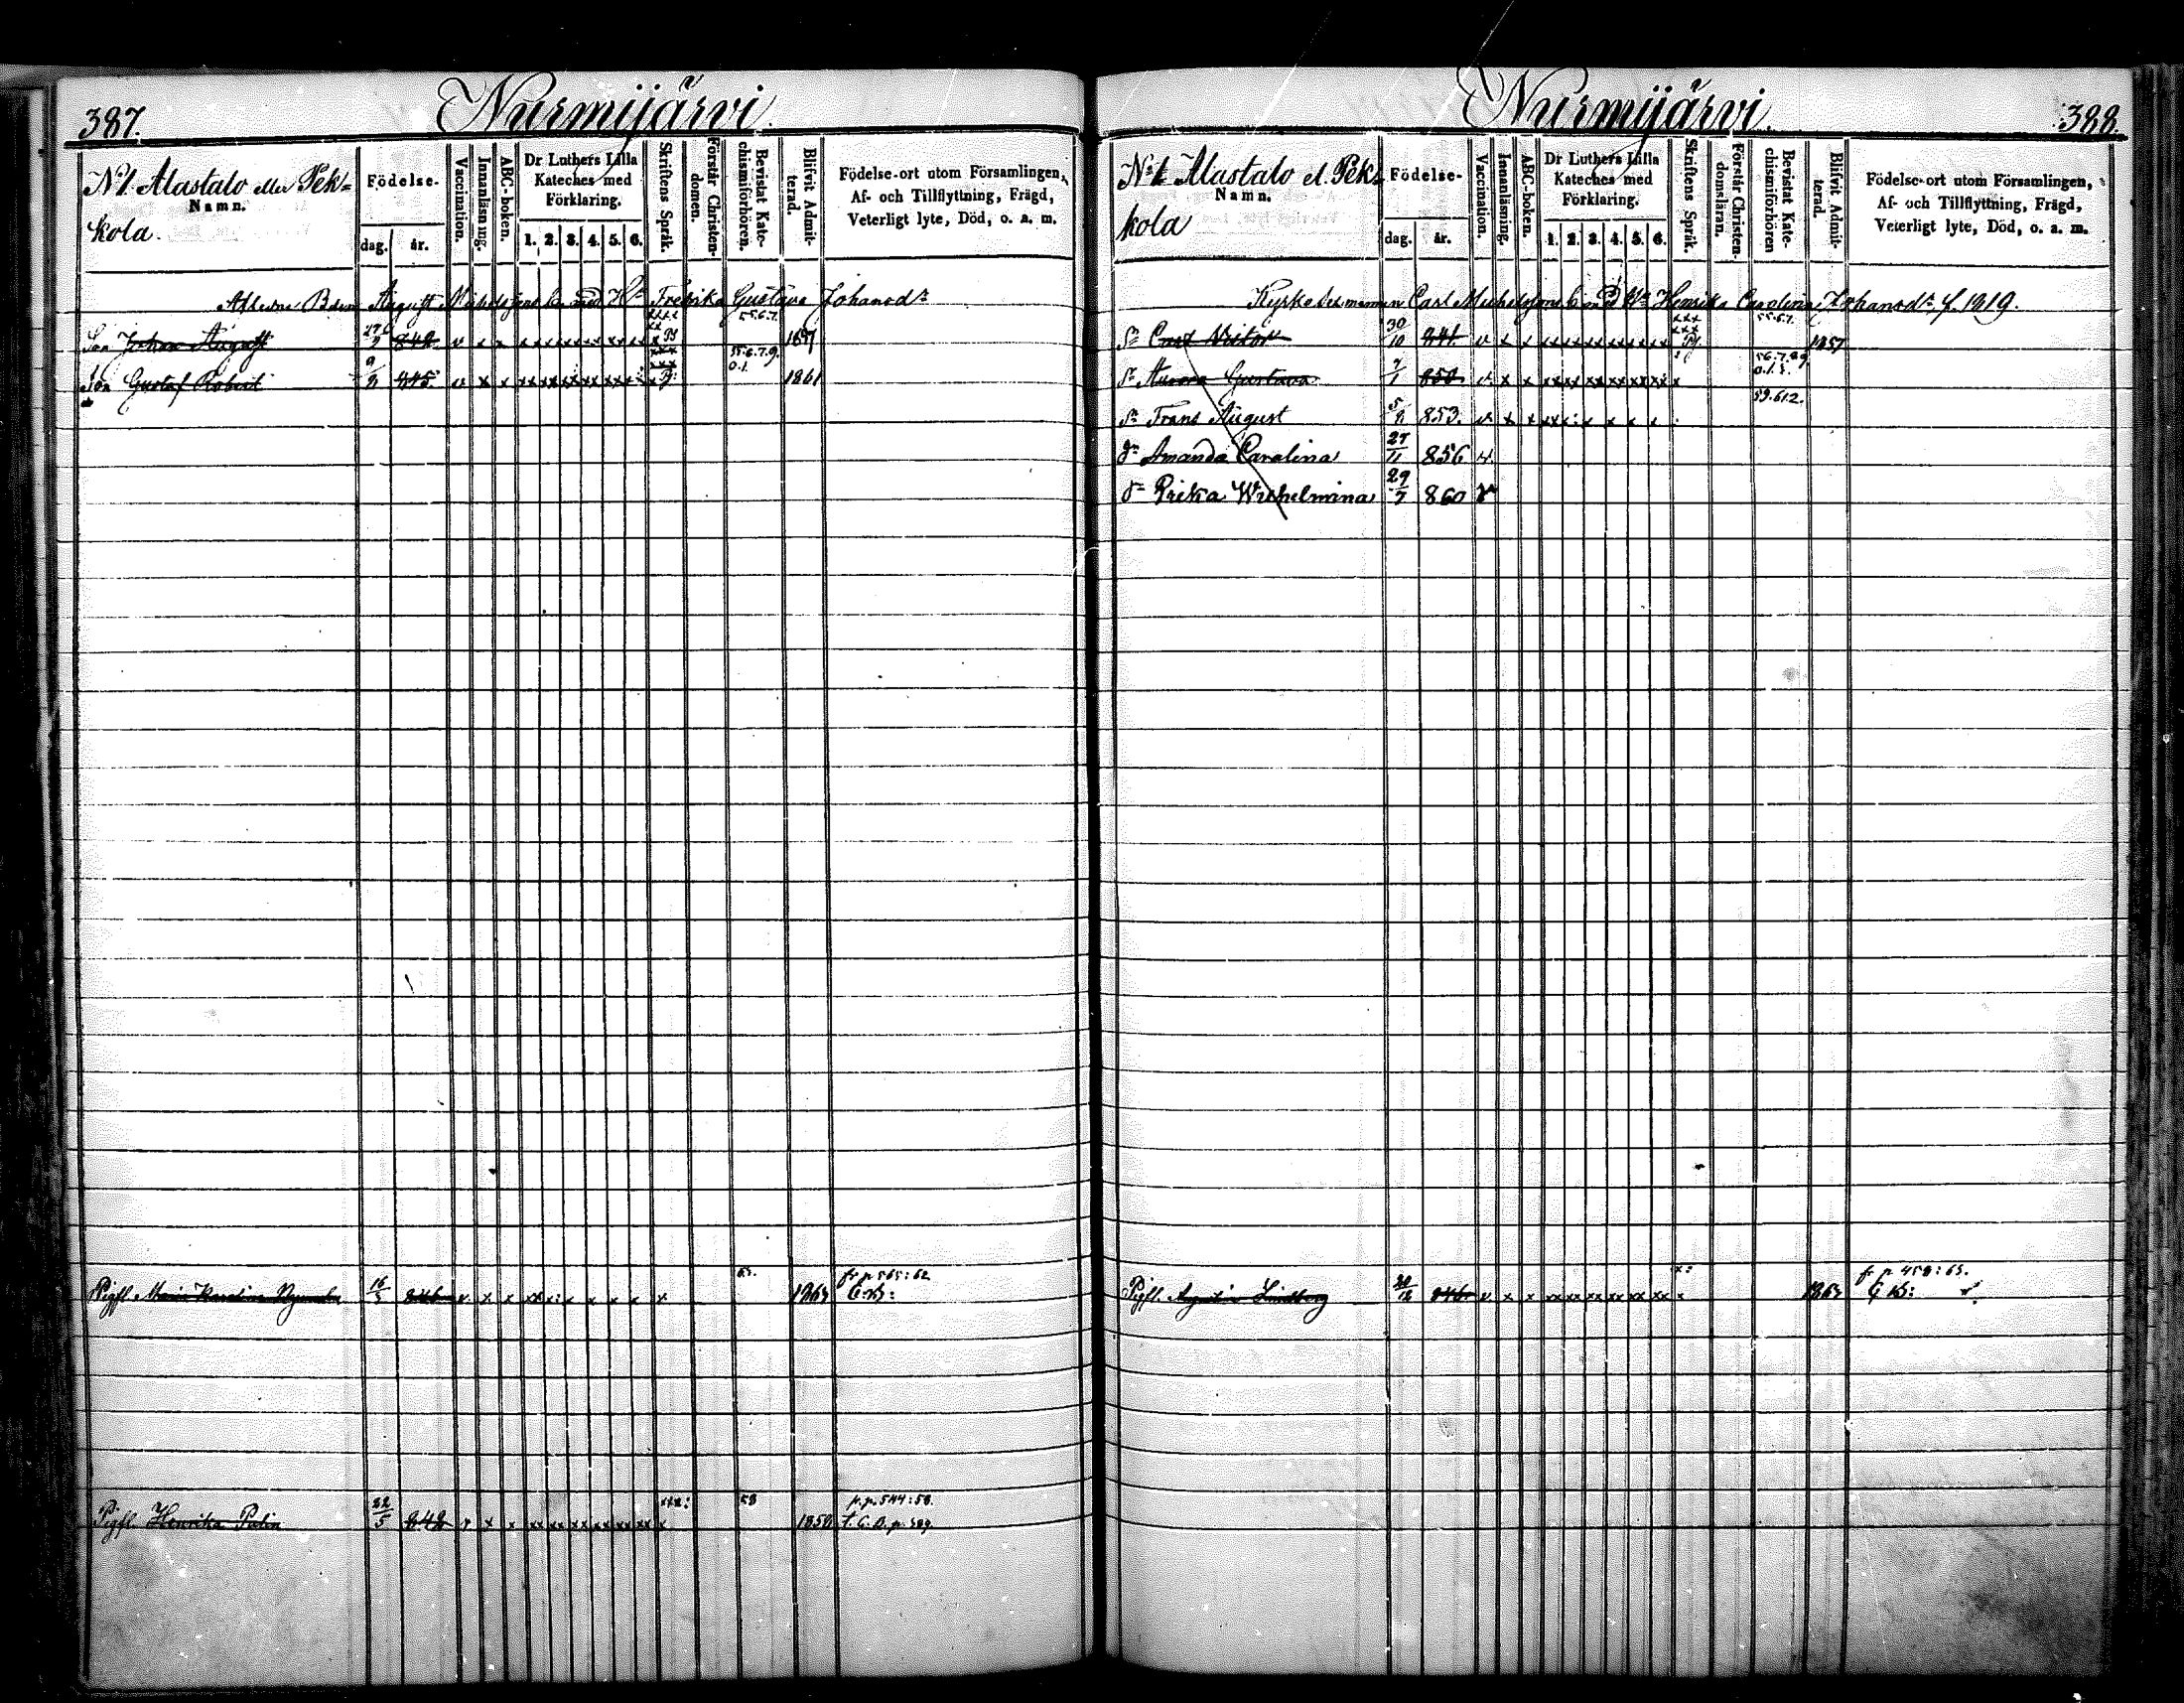 387.
Nurmijärvi.
N:o 1. Alastalo eller Pek=
kola.
Namn.
Födelse-
dag. år.
Vaccination.
Innanläsning.
ABC-boken.
Dr Luthers Lilla Kateches med Förklaring.
1. 2. 3. 4. 5. 6.
Skriftens Språk.
Förstår Christendomen.
Bevistat Katechismiförhören.
Blifvit Admitterad.
Födelse-ort utom Församlingen,
Af- och Tillflyttning, Frägd,
Veterligt lyte, Död, o. a. m.
August Michelsson med Fredrika Gustava Johansdr
Son Johan August 27/9 842 v x x 55.6.7. 1857
Son Gustaf Robert 9/2 845 v x x 55.6.7.9. 0.1. 1861
Pigfl. Maria Karolina 16/3 846 v x x 63. 1863 fr p 565:62
Pigfl. Henrika Palin 22/5 842 v x x 58 1858 fr p. 544:58.
388.
Nurmijärvi.
N:o 1. Alastalo el. Pek=
kola
Namn.
Födelse-
dag. år.
Vaccination.
Innanläsning.
ABC-boken.
Dr Luthers Lilla Kateches med Förklaring.
1. 2. 3. 4. 5. 6.
Skriftens Språk.
Förstår Christendomsläran.
Bevistat Katechismiförhören
Blifvit Admitterad.
Födelse-ort utom Församlingen,
Af- och Tillflyttning, Frägd,
Veterligt lyte, Död, o. a. m.
Carl Michelsson med Henrika Carolina Johansdr f. 1819.
Sn Carl Victor 30/10 841 v x x 55.6.7. 1857
Aurora Gustava 7/1 850 v x x 56.7.8.9. 0.1.2.
Sn Frans August 5/2 853. v x x 59.61.2.
dr Amanda Carolina 27/11 856 v
dr Wilhelmina 29/7 860 v
Pigfl. Lindberg 846 v x x 1863 fr p 458:63.